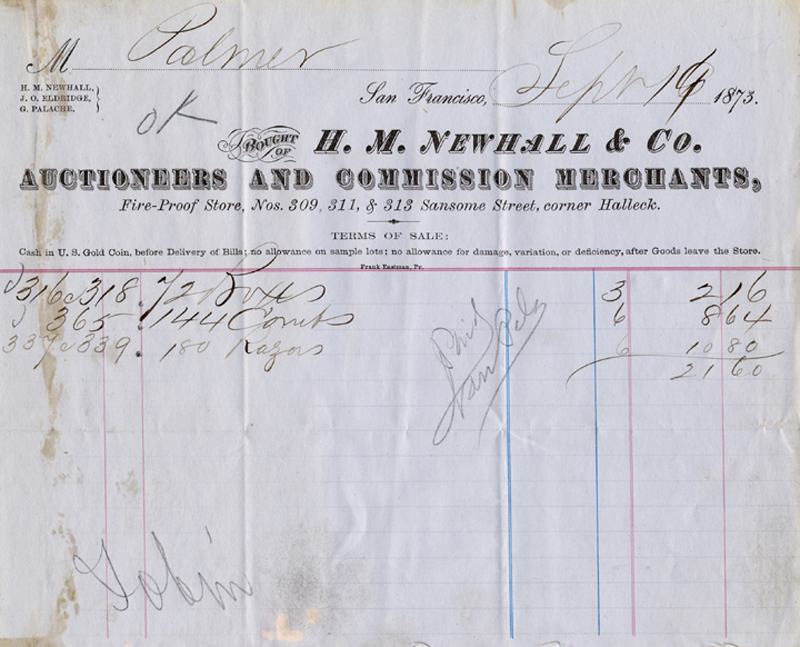 M Palmer
H. M. NEWHALL,
J. O. ELDRIDGE,
G. PALACHE.
San Francisco, Sept 1873.
OK
BOUGHT OF H. M. NEWHALL & CO.
AUCTIONEERS AND COMMISSION MERCHANTS,
Fire-Proof Store, Nos. 309, 311, & 313 Sansome Street, corner Halleck.
TERMS OF SALE:
Cash in U. S. Gold Coin, before Delivery of Bills; no allowance on sample lots; no allowance for damage, variation, or deficiency, after Goods leave the Store.
Frank Eastman, Pr.
316 318 . 72 Boxes 3 2 16
365 . 144 Combs 6 8 64
337 339 . 180 Razors 6 10 80
21 60
Paid
Tobin